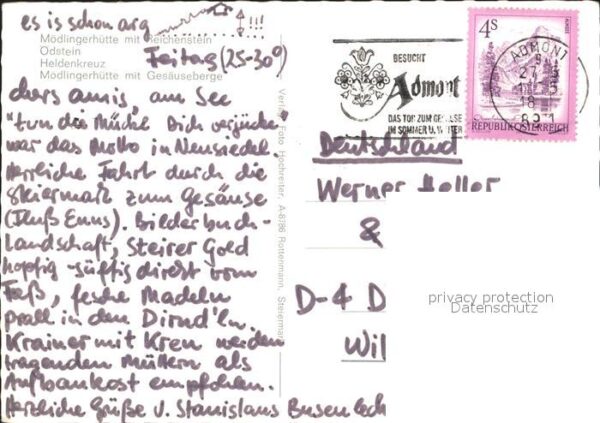 es is schon arg !!!
Mödlingerhütte mit Reichenstein
Odstein
Heldenkreuz
Mödlingerhütte mit Gesäuseberge
Feitag (25-30°)
chers amis, am See
"tun die Mückl Dich verjücke"
war das Motto in Neusiedel.
Herrliche Fahrt durch die
Steiermark zum Gesäuse
(Fluß Enns). Bilderbuch-
Landschaft, Steirer Gold
hopfig-süffig direkt vom
Faß, fesche Madeln
prall in den Dirnd'ln.
Krainer mit Kren werden
tragenden Müttern als
Aufbaukost empfohlen.
Herzliche Grüße v. Stanislaus
Verlag Foto Hochreiter, A-8786 Rottenmann, Steiermark
BESUCHT
Admont
DAS TOR ZUM GESÄUSE
IM SOMMER U. WINTER
4S
REPUBLIK ÖSTERREICH
ADMONT
Deutschland
Werner Holler
&
D-4 D
Wil
privacy protection
Datenschutz